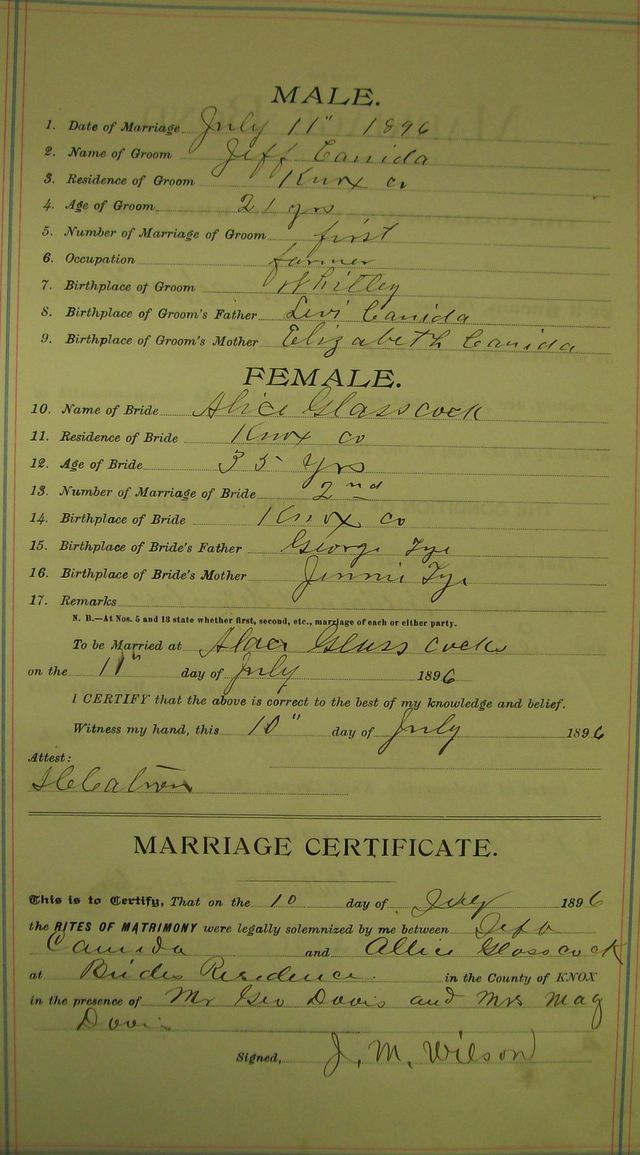 MALE.
1. Date of Marriage July 11" 1896
2. Name of Groom Jeff Canida
3. Residence of Groom Knox co
4. Age of Groom 21 yrs
5. Number of Marriage of Groom first
6. Occupation farmer
7. Birthplace of Groom Whitley
8. Birthplace of Groom's Father Levi Canida
9. Birthplace of Groom's Mother Elizabeth Canida
FEMALE.
10. Name of Bride Alice Glasscock
11. Residence of Bride Knox co
12. Age of Bride 35 yrs
13. Number of Marriage of Bride 2nd
14. Birthplace of Bride Knox co
15. Birthplace of Bride's Father George Tye
16. Birthplace of Bride's Mother Jennie Tye
17. Remarks
N. B.—At Nos. 5 and 13 state whether first, second, etc., marriage of each or either party.
To be Married at Glass cocks
on the 11" day of July 1896
I CERTIFY that the above is correct to the best of my knowledge and belief.
Witness my hand, this 10" day of July 1896
Attest:
Catron
MARRIAGE CERTIFICATE.
This is to Certify, That on the 10 day of July 1896
the RITES OF MATRIMONY were legally solemnized by me between
Canida and Allice Glasscock
at Brides Residence in the County of KNOX
in the presence of Mr Geo Davis and Mrs Mag
Davis
Signed, J. M. Wilson